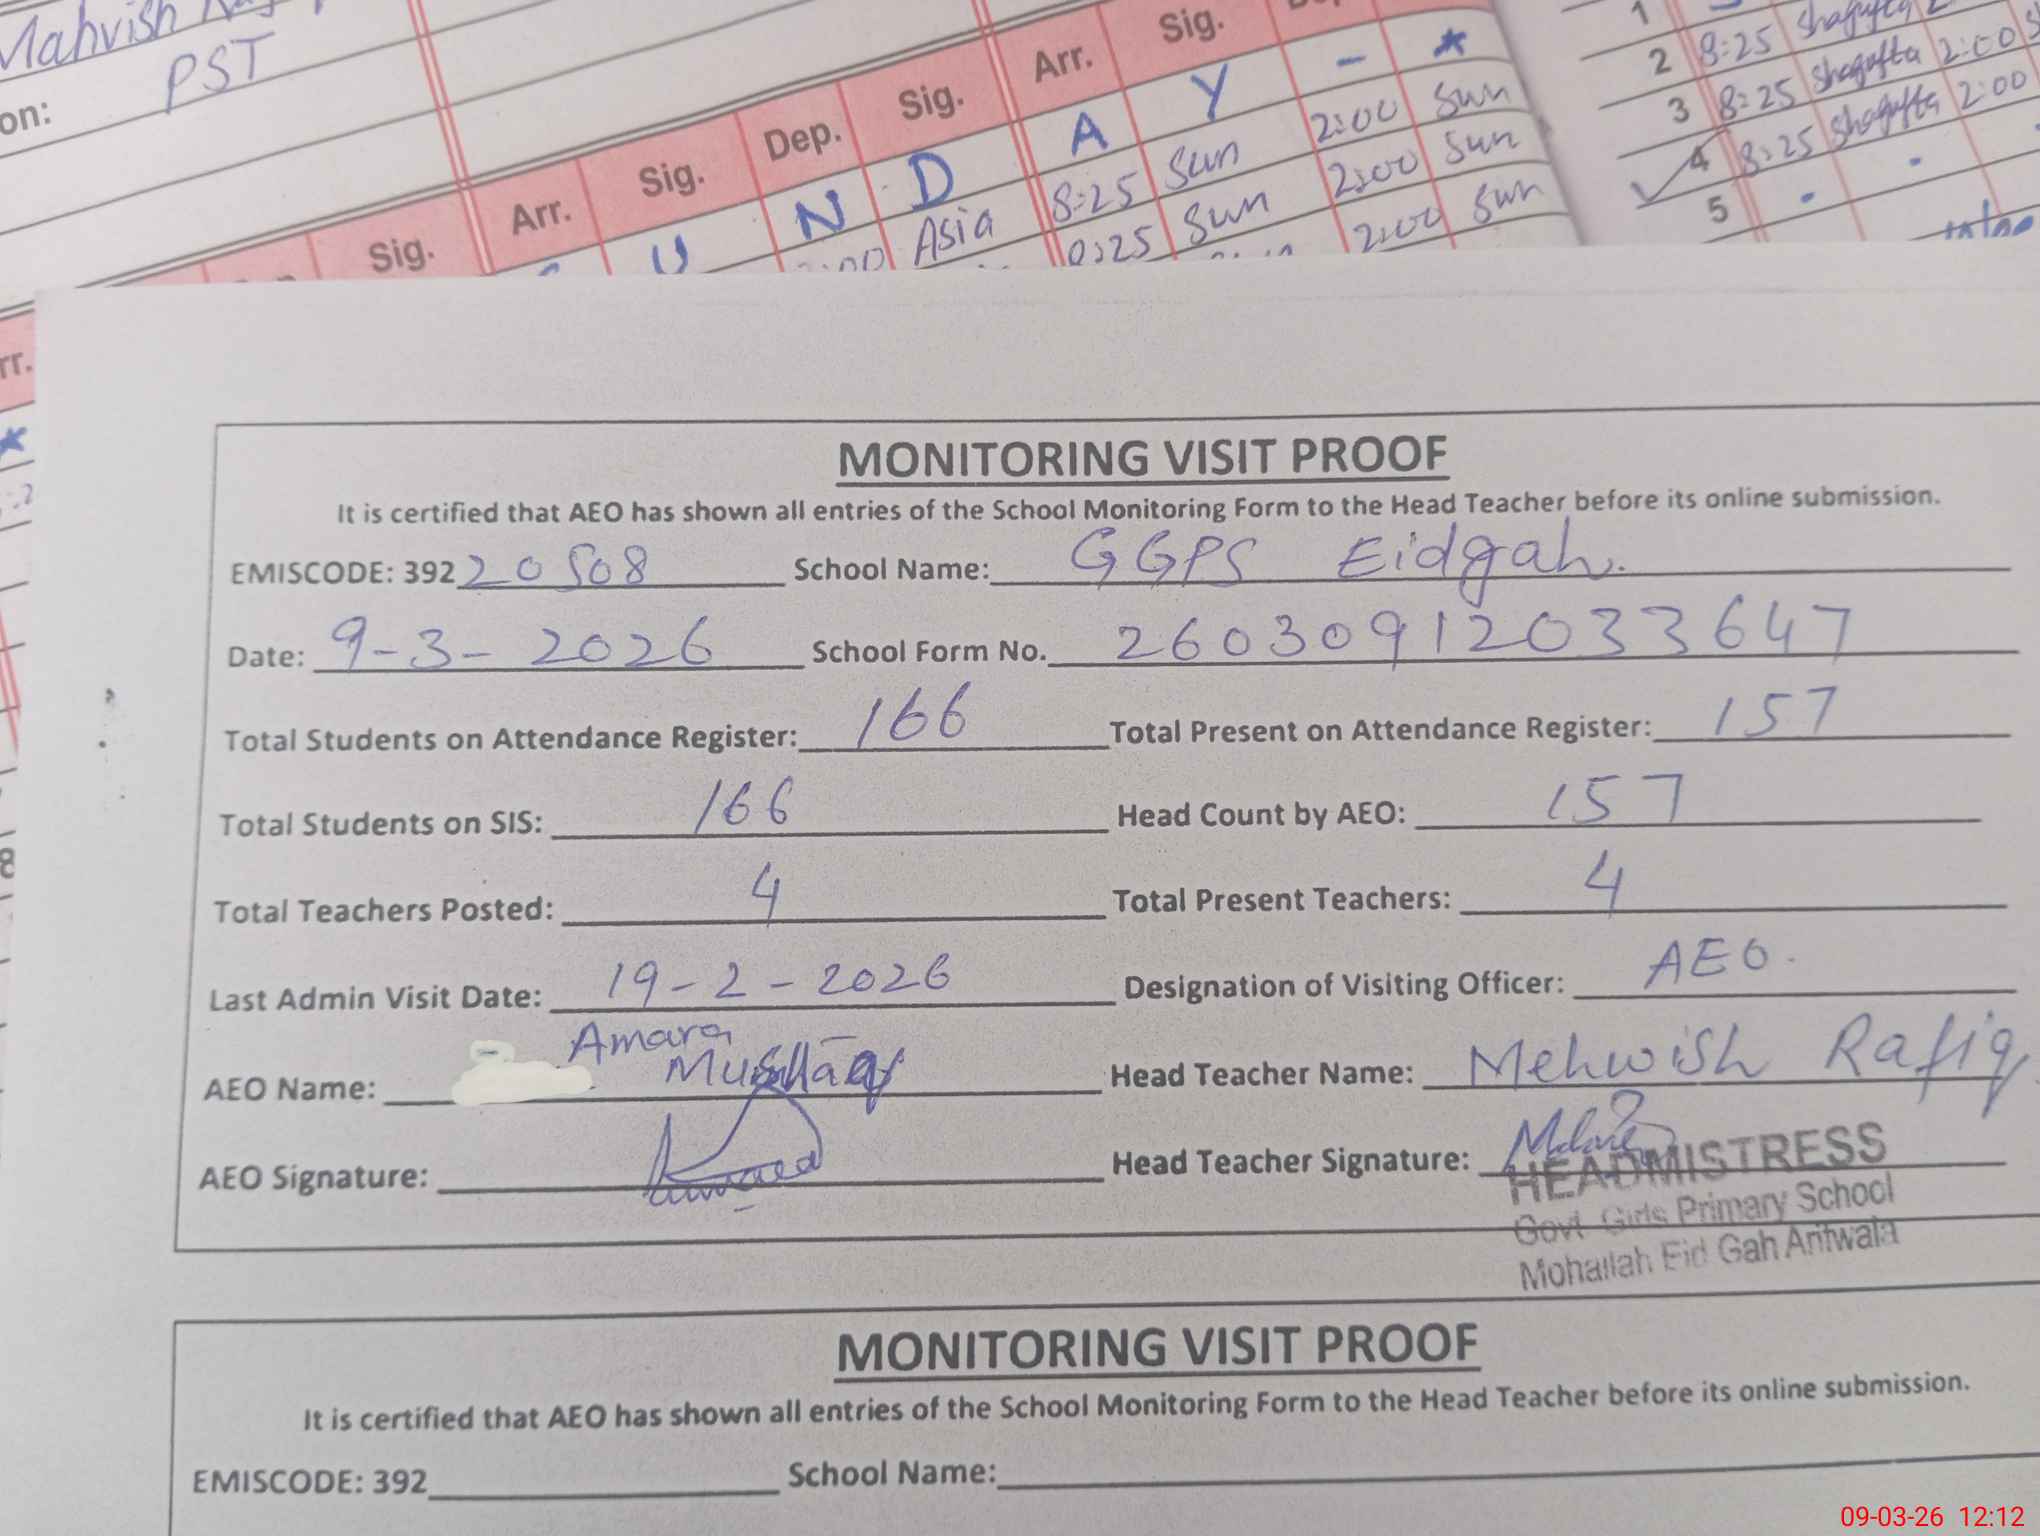 Mahvish
on: PST
Sig. Arr. Sig. Dep. Sig. Arr. Sig.
U N D A Y - *
Asia 8:25 Sun 2:00 Sun
Sun 2:00 Sun
2:00 Sun
1
2 8:25 Shagufta
3 8:25 Shagufta 2:00
4 8:25 Shagufta 2:00
5
MONITORING VISIT PROOF
It is certified that AEO has shown all entries of the School Monitoring Form to the Head Teacher before its online submission.
EMISCODE: 39220508 School Name: GGPS Eidgah.
Date: 9-3-2026 School Form No. 26030912033647
Total Students on Attendance Register: 166 Total Present on Attendance Register: 157
Total Students on SIS: 166 Head Count by AEO: 157
Total Teachers Posted: 4 Total Present Teachers: 4
Last Admin Visit Date: 19-2-2026 Designation of Visiting Officer: AEO.
AEO Name: Amara Mushtaq Head Teacher Name: Mehwish Rafiq
AEO Signature: Head Teacher Signature:
HEADMISTRESS
Govt Girls Primary School
Mohallah Eid Gah Arifwala
MONITORING VISIT PROOF
It is certified that AEO has shown all entries of the School Monitoring Form to the Head Teacher before its online submission.
EMISCODE: 392 School Name:
09-03-26 12:12